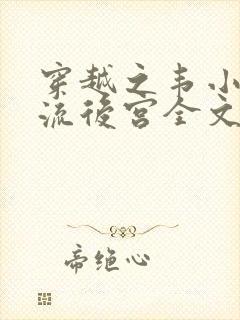 穿越之韦小
流后宫全文
帝绝心